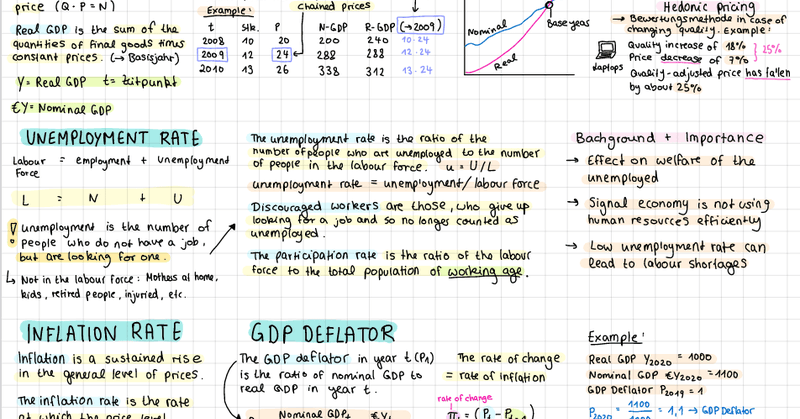 price (Q · P = N)
Real GDP is the sum of the
quantities of final goods times
constant prices. (→ Basisjahr)
Y = Real GDP t = Zeitpunkt
€Y = Nominal GDP
Example:
chained prices
t Stk. P N-GDP R-GDP (→ 2009)
2008 10 20 200 240 10·24
2009 12 24 288 288 12·24
2010 13 26 338 312 13·24
Nominal
Real
Base years
Hedonic Pricing
→ Bewertungsmethode in case of
changing quality. Example:
Laptops
Quality increase of 18%
Price decrease of 7%
25%
Quality-adjusted price has fallen
by about 25%
UNEMPLOYMENT RATE
Labour = employment + unemployment
Force
L = N + U
! unemployment is the number of
people who do not have a job,
but are looking for one.
↳ Not in the labour force: Mothers at home,
kids, retired people, injuried, etc.
The unemployment rate is the ratio of the
number of people who are unemployed to the number
of people in the labour force. u = U/L
unemployment rate = unemployment/labour force
Discouraged workers are those, who give up
looking for a job and so no longer counted as
unemployed.
The participation rate is the ratio of the labour
force to the total population of working age.
Background + Importance
→ Effect on welfare of the
unemployed
→ Signal economy is not using
human resources efficiently
→ Low unemployment rate can
lead to labour shortages
INFLATION RATE
Inflation is a sustained rise
in the general level of prices.
The inflation rate is the rate
at which the price level
GDP DEFLATOR
The GDP deflator in year t (Pt)
is the ratio of nominal GDP to
real GDP in year t.
Nominal GDPt €Yt
The rate of change
= rate of inflation
rate of change
πt = (Pt - Pt-1)
Example:
Real GDP Y2020 = 1000
Nominal GDP €Y2020 = 1100
GDP Deflator P2019 = 1
P2020 = 1100/1000 = 1,1 → GDP Deflator